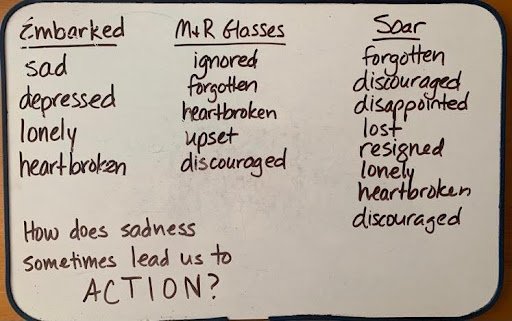 Embarked
sad
depressed
lonely
heartbroken
M+R Glasses
ignored
forgotten
heartbroken
upset
discouraged
Soar
forgotten
discouraged
disappointed
lost
resigned
lonely
heartbroken
discouraged
How does sadness
sometimes lead us to
ACTION?